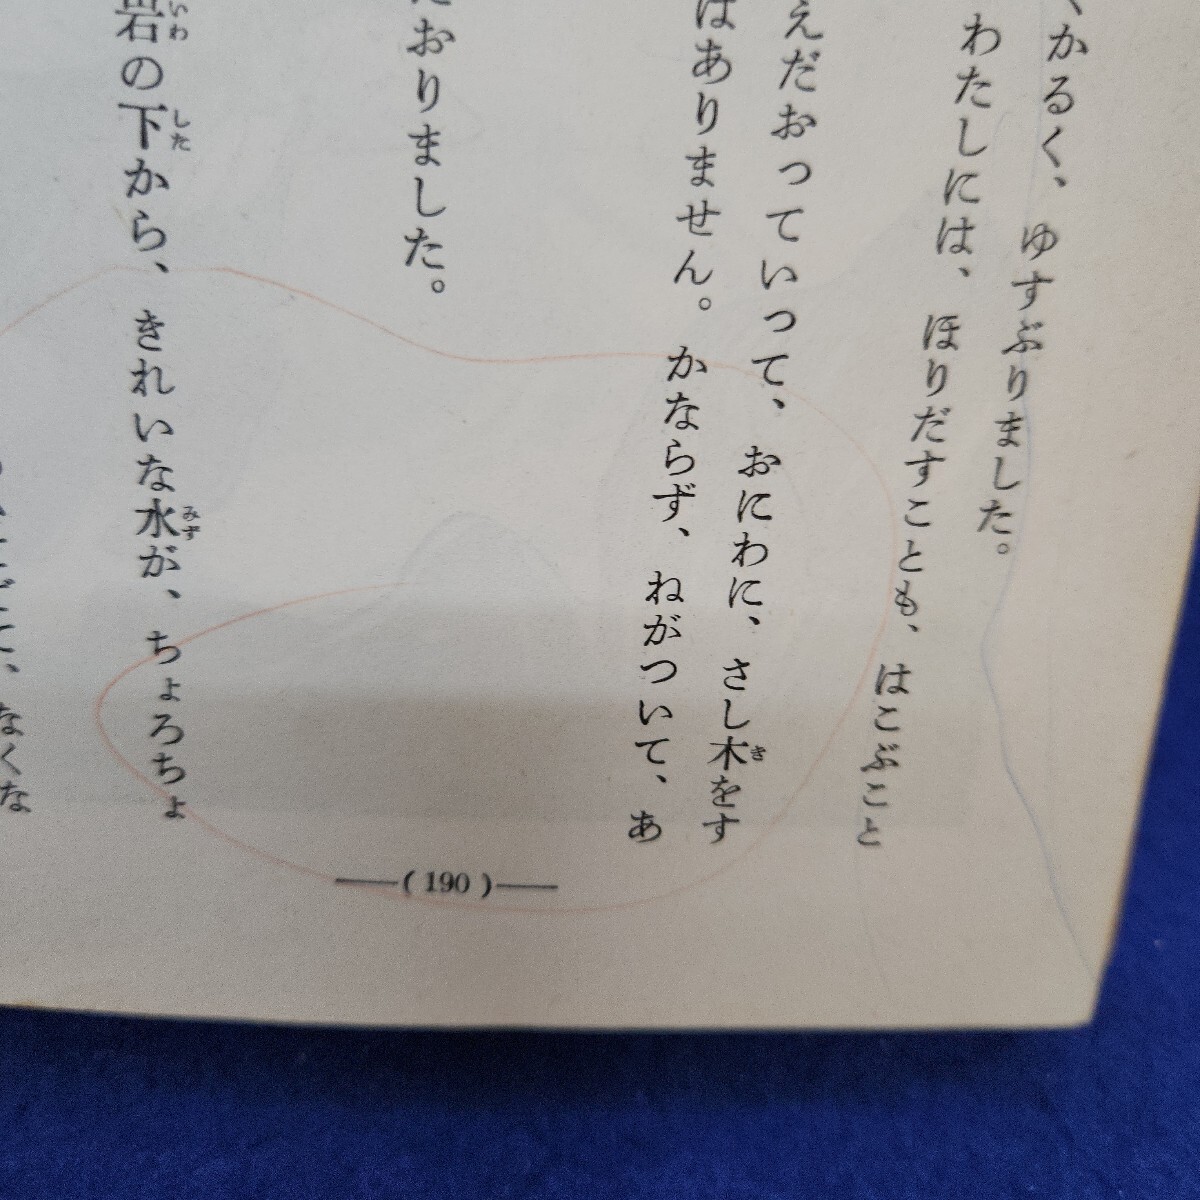 かるく、ゆすぶりました。
わたしには、ほりだすことも、はこぶこと
えだおっていって、おにわに、さし木をす
はありません。かならず、ねがついて、あ
おりました。
岩の下から、きれいな水が、ちょろちょ
て、なくな
—( 190 )—